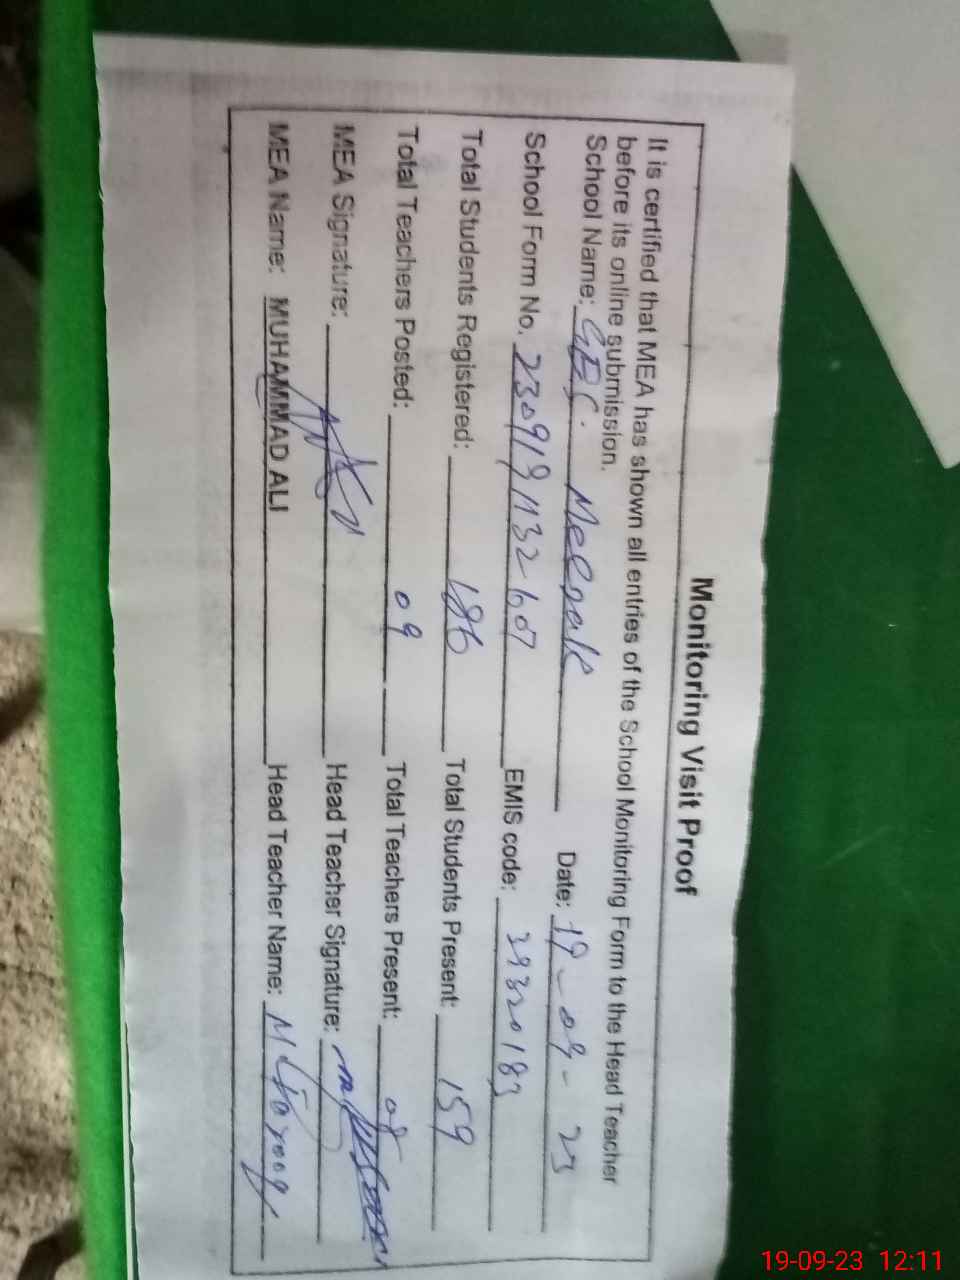 Monitoring Visit Proof
It is certified that MEA has shown all entries of the School Monitoring Form to the Head Teacher
before its online submission.
School Name: Date: 19-09-23
School Form No. 2309191132607 EMIS code:
Total Students Registered: 186 Total Students Present: 159
Total Teachers Posted: 09 Total Teachers Present: 08
MEA Signature: Head Teacher Signature:
MEA Name: MUHAMMAD ALI Head Teacher Name: M Farooq
19-09-23 12:11